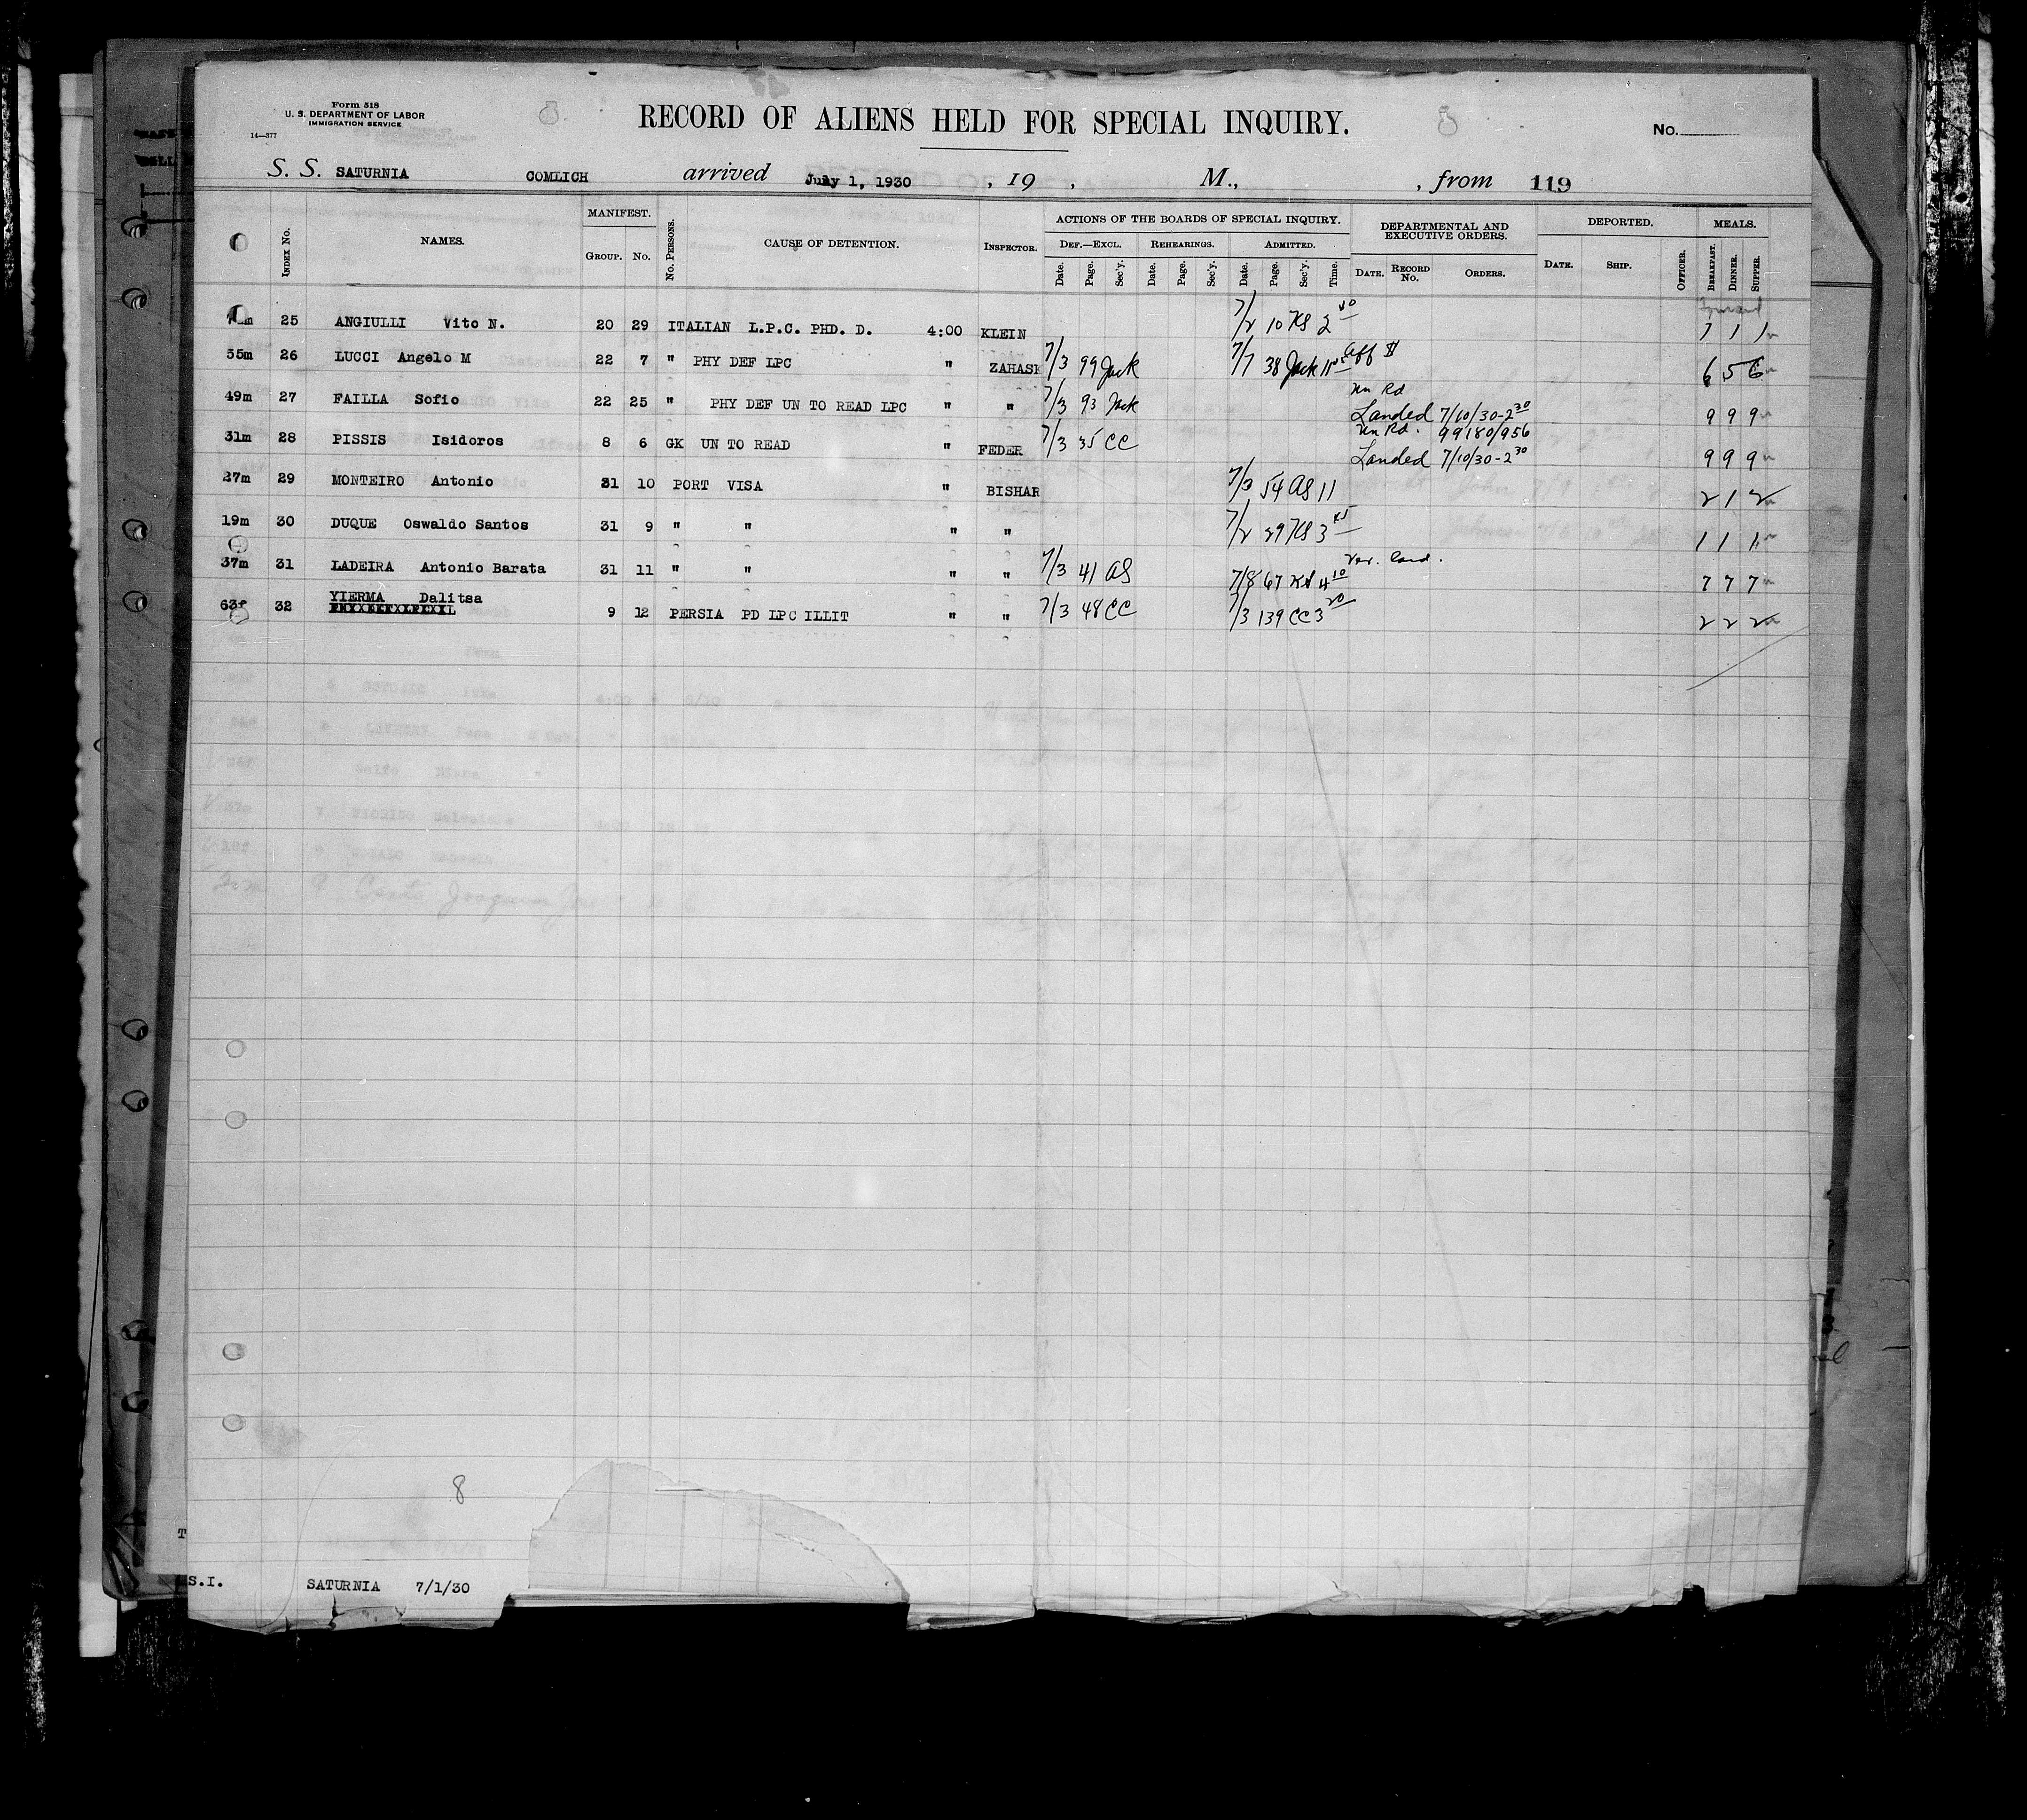 Form 518
U. S. DEPARTMENT OF LABOR
IMMIGRATION SERVICE
14—377
RECORD OF ALIENS HELD FOR SPECIAL INQUIRY.
No.
S. S. SATURNIA COMLICH arrived July 1, 1930 , 19 , M., , from 119
INDEX No. NAMES. MANIFEST. GROUP. No. No. PERSONS. CAUSE OF DETENTION. INSPECTOR. ACTIONS OF THE BOARDS OF SPECIAL INQUIRY. DEF.—EXCL. Date. Page. Sec'y. REHEARINGS. Date. Page. Sec'y. ADMITTED. Date. Page. Sec'y. Time. DEPARTMENTAL AND EXECUTIVE ORDERS. DATE. RECORD No. ORDERS. DEPORTED. DATE. SHIP. OFFICER. MEALS. BREAKFAST. DINNER. SUPPER.
25 ANGIULLI Vito N. 20 29 ITALIAN L.P.C. PHD. D. 4:00 KLEIN 7/2 10 KS 2 1 1
55m 26 LUCCI Angelo M 22 7 " PHY DEF LPC " ZAHASK 7/3 99 Jack 7/7 38 Jack Aff $ 6 5 6
49m 27 FAILLA Sofio 22 25 " PHY DEF UN TO READ LPC " " 7/3 93 Jack Un Rd Landed 7/10/30-2 30 9 9 9
31m 28 PISSIS Isidoros 8 6 GK UN TO READ " FEDER 7/3 35 CC Un Rd. 99180/956 Landed 7/10/30-2 30 9 9 9
27m 29 MONTEIRO Antonio 31 10 PORT VISA " BISHAR 7/3 54 AS 11 2 1 2
19m 30 DUQUE Oswaldo Santos 31 9 " " " " 7/2 29 KS 3 45 1 1 1
37m 31 LADEIRA Antonio Barata 31 11 " " " " 7/3 41 AS 7/8 67 KS 4 10 7 7 7
63f 32 YIERMA Dalitsa 9 12 PERSIA PD LPC ILLIT " " 7/3 48 CC 7/3 139 CC 3 20 2 2 2
8
S.I. SATURNIA 7/1/30